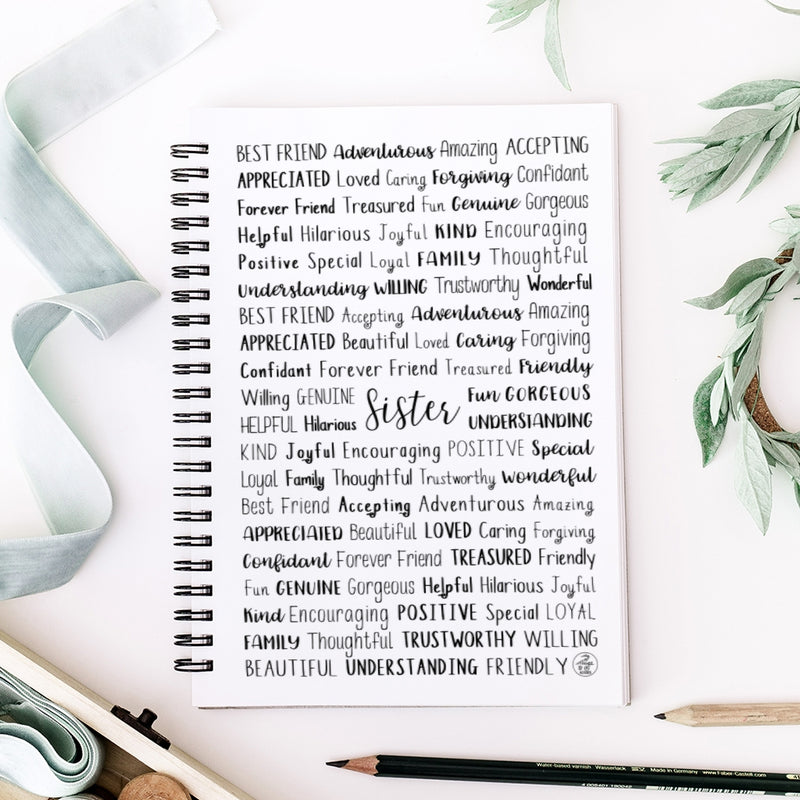 BEST FRIEND Adventurous Amazing ACCEPTING
APPRECIATED Loved Caring Forgiving Confidant
Forever Friend Treasured Fun Genuine Gorgeous
Helpful Hilarious Joyful KIND Encouraging
Positive Special Loyal FAMILY Thoughtful
Understanding WILLING Trustworthy Wonderful
BEST FRIEND Accepting Adventurous Amazing
APPRECIATED Beautiful Loved Caring Forgiving
Confidant Forever Friend Treasured Friendly
Willing GENUINE Fun GORGEOUS
Sister
HELPFUL Hilarious UNDERSTANDING
KIND Joyful Encouraging POSITIVE Special
Loyal Family Thoughtful Trustworthy Wonderful
Best Friend Accepting Adventurous Amazing
APPRECIATED Beautiful LOVED Caring Forgiving
Confidant Forever Friend TREASURED Friendly
Fun GENUINE Gorgeous Helpful Hilarious Joyful
Kind Encouraging POSITIVE Special LOYAL
FAMILY Thoughtful TRUSTWORTHY WILLING
BEAUTIFUL UNDERSTANDING FRIENDLY
Water-based varnish Wasserlack Made in Germany www.Faber-Castell.com